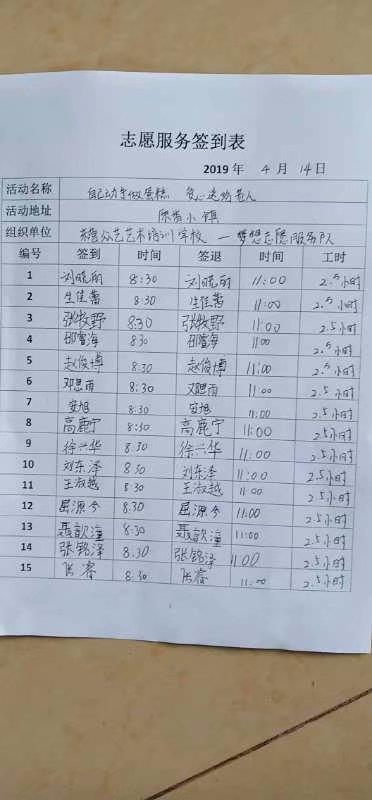 志愿服务签到表
2019年 4月 14日
活动名称 自己动手做蛋糕 爱心送给老人
活动地址 小镇
组织单位 众艺艺术培训学校 — 梦想志愿服务队
编号 签到 时间 签退 时间 工时
1 刘晓丽 8:30 刘晓丽 11:00 2.5小时
2 生佳蕾 8:30 生佳蕾 11:00 2.5小时
3 张牧野 8:30 张牧野 11:00 2.5小时
4 邵雪海 8:30 邵雪海 11:00 2.5小时
5 赵俊博 8:30 赵俊博 11:00 2.5小时
6 邓思雨 8:30 邓思雨 11:00 2.5小时
7 安旭 8:30 安旭 11:00 2.5小时
8 高鹿宁 8:30 高鹿宁 11:00 2.5小时
9 徐兴华 8:30 徐兴华 11:00 2.5小时
10 刘东泽 8:30 刘东泽 11:00 2.5小时
11 王淑越 8:30 王淑越 11:00 2.5小时
12 屈源今 8:30 屈源今 11:00 2.5小时
13 聂歆潼 8:30 聂歆潼 11:00 2.5小时
14 张铭泽 8:30 张铭泽 11:00 2.5小时
15 张睿 8:30 张睿 11:00 2.5小时